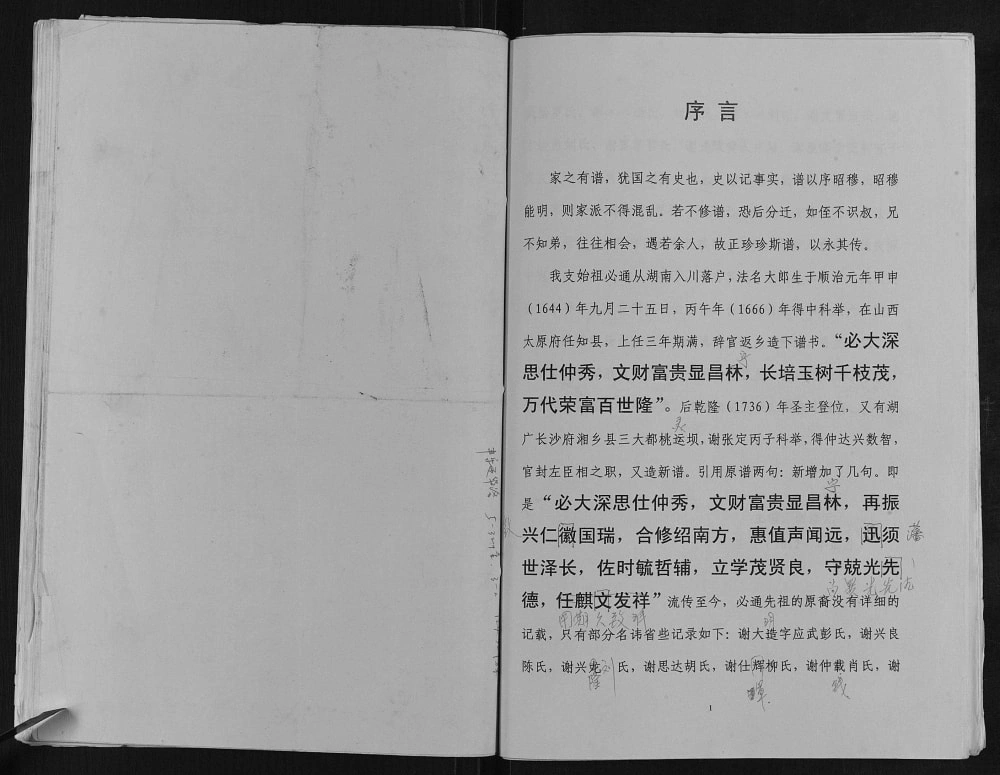 序言
家之有谱，犹国之有史也，史以记事实，谱以序昭穆，昭穆
能明，则家派不得混乱。若不修谱，恐后分迁，如侄不识叔，兄
不知弟，往往相会，遇若余人，故正珍珍斯谱，以永其传。
我支始祖必通从湖南入川落户，法名大郎生于顺治元年甲申
（1644）年九月二十五日，丙午年（1666）年得中科举，在山西
太原府任知县，上任三年期满，辞官返乡造下谱书。“必大深
思仕仲秀，文财富贵显昌林，长培玉树千枝茂，
万代荣富百世隆”。后乾隆（1736）年圣主登位，又有湖
广长沙府湘乡县三大都桃运坝，谢张定丙子科举，得仲达兴数智，
官封左臣相之职，又造新谱。引用原谱两句：新增加了几句。即
是“必大深思仕仲秀，文财富贵显昌林，再振
兴仁徽国瑞，合修绍南方，惠值声闻远，迅须
世泽长，佐时毓哲辅，立学茂贤良，守兢光先
德，任麒文发祥”流传至今，必通先祖的原裔没有详细的
记载，只有部分名讳省些记录如下：谢大造字应武彭氏，谢兴良
陈氏，谢兴龙 氏，谢思达胡氏，谢仕辉柳氏，谢仲载肖氏，谢
刘
隆
1